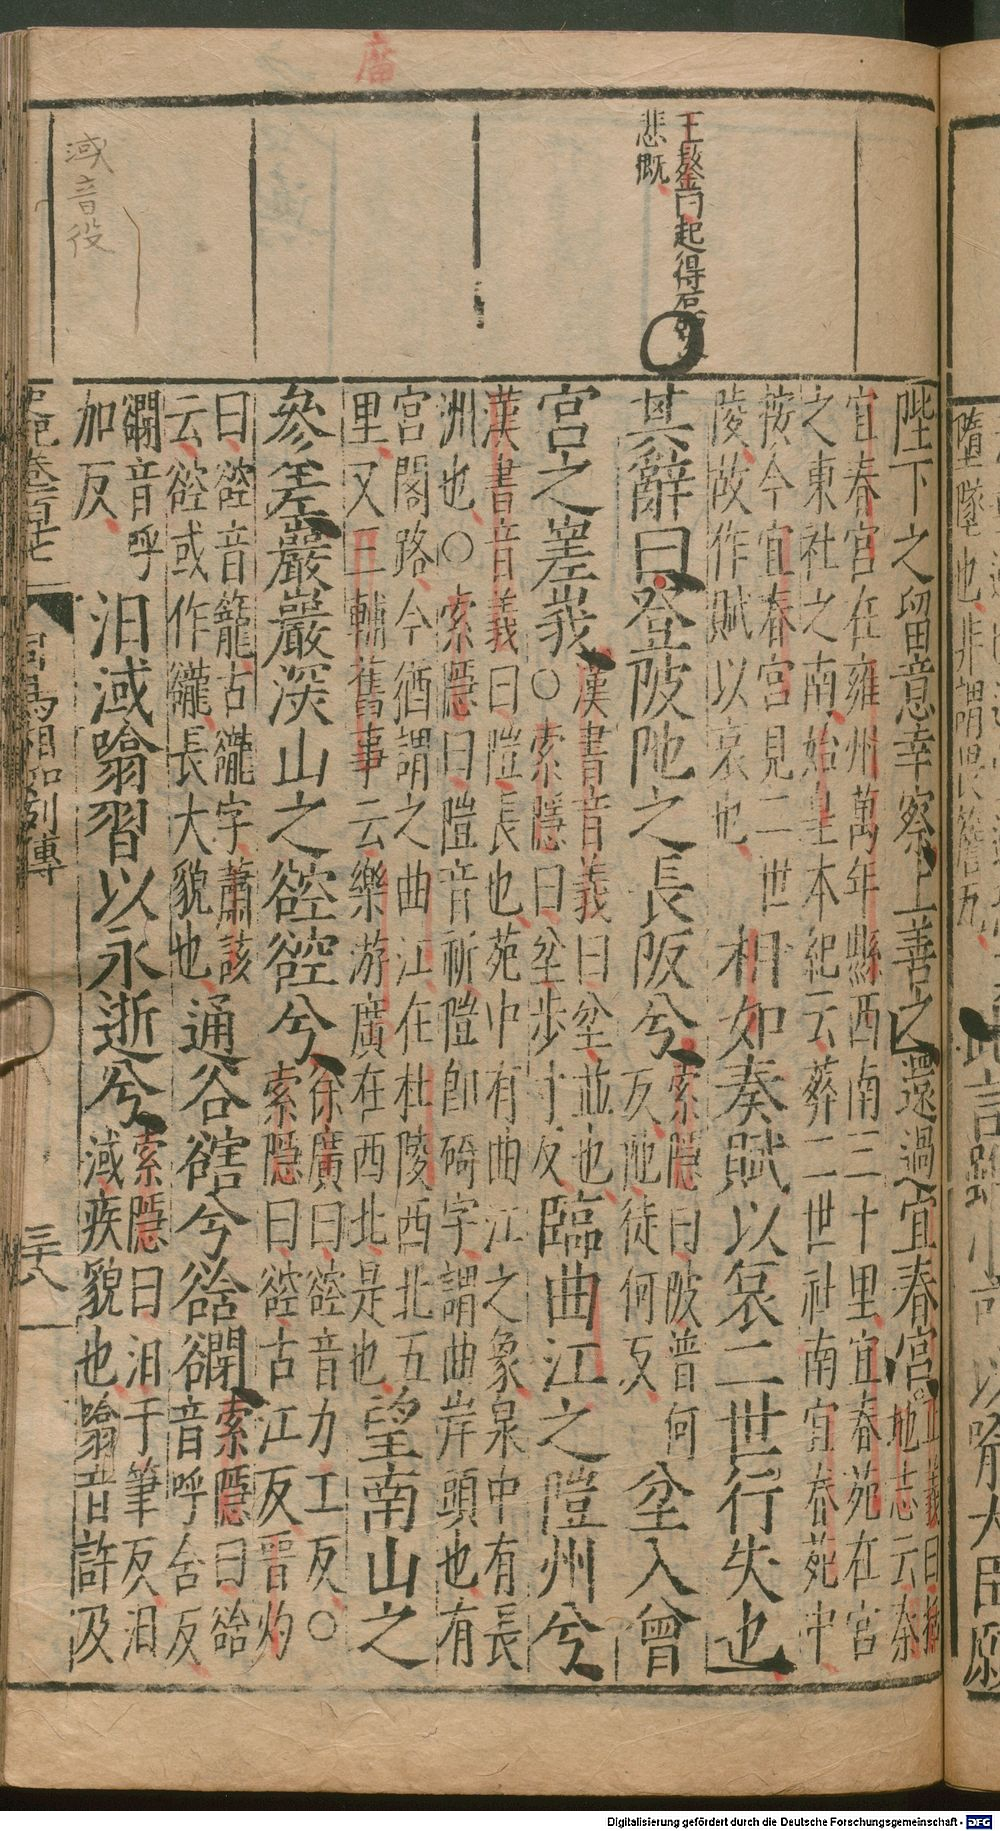 廇
王鏊曰起得
悲慨
淢音役
陛下之留意幸察上善之還過宜春宮正義曰括地志云秦
宜春宮在雍州萬年縣西南三十里宜春苑在宮
之東杜之南始皇本紀云葬二世社南宜春苑中
按今宜春宮見二世
陵故作賦以哀也相如奏賦以哀二世行失也
其辭曰登陂阤之長阪兮索隱曰陂普何
反阤徒何反坌入曾
宮之嵳峩漢書音義曰坌並也
○索隱曰坌步寸反臨曲江之隑州兮
漢書音義曰隑長也苑中有曲江之象泉中有長
洲也○索隱曰隑音祈隑卽碕字謂曲岸頭也有
宮閣路今猶謂之曲江在杜陵西北五
里又三輔舊事云樂游廣在西北是也望南山之
參差巖巖深山之谾谾兮徐廣曰谾音力工反○
索隱曰谾古江反晋灼
曰谾音籠古䜫字蕭該
云谾或作䜫長大貌也通谷豁兮谽谺索隱曰谽
音呼含反
谺音呼
加反汨淢噏習以永逝兮索隱曰汨于筆反汨
淢疾貌也噏音許及
史記卷百十七
司馬相如列傳
三十八
墮墜也非謂畏簷瓦
此言雖小可以喻大臣願
Digitalisierung gefördert durch die Deutsche Forschungsgemeinschaft - DFG